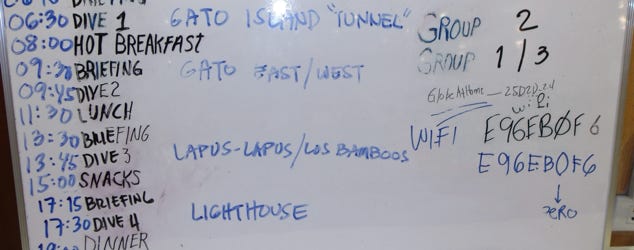 BRIEFING
06:30 DIVE 1 GATO ISLAND "TUNNEL" GROUP 2
08:00 HOT BREAKFAST GROUP 1/3
09:30 BRIEFING GATO EAST/WEST
09:45 DIVE2 GlobeAtHome
11:30 LUNCH WiFi
13:30 BRIEFING WIFI E96EBØF6
13:45 DIVE 3 LAPUS-LAPUS/LOS BAMBOOS E96EB0F6
15:00 SNACKS
17:15 BRIEFING
17:30 DIVE 4 LIGHTHOUSE zERO
DINNER